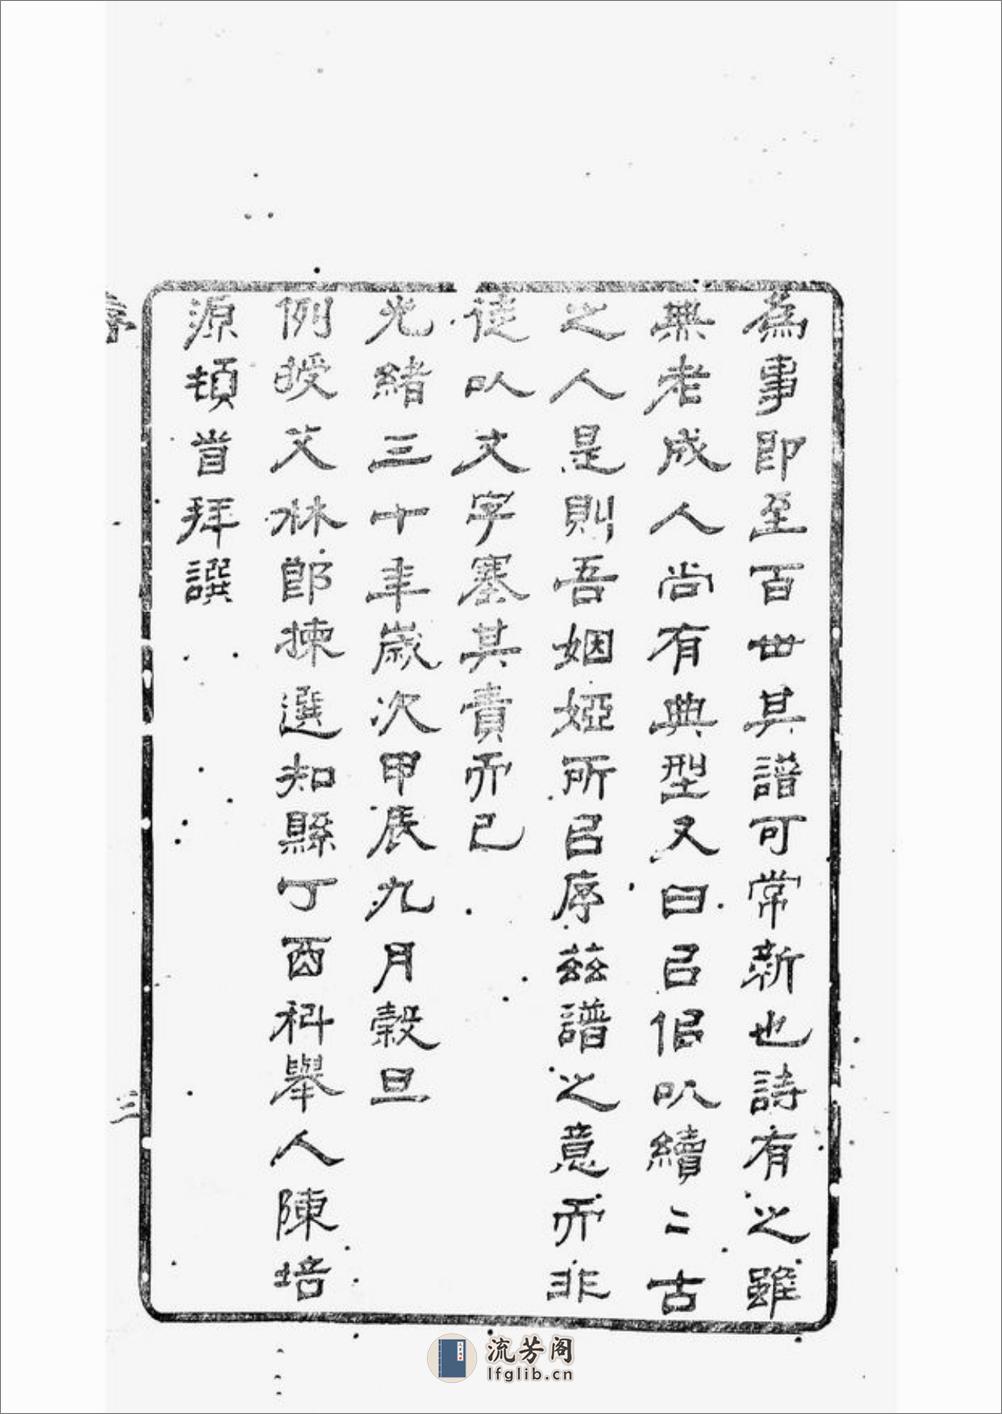 為事即至百世其譜可常新也詩有之雖
無老成人尚有典型又曰㠯佀㕥續〻古
之人是則吾姻婭所㠯序茲譜之意而非
徒㕥文字塞其責而已
光緒三十年歲次甲辰九月穀旦
例授文林郎揀選知縣丁酉科舉人陳培
源頓首拜譔
三
流芳阁
lfglib.cn